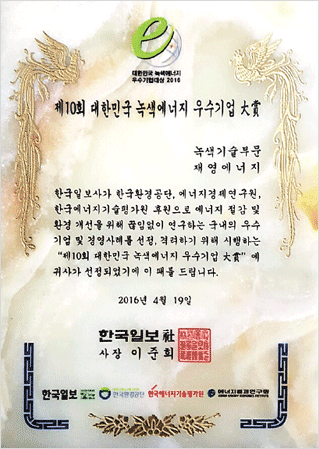 대한민국 녹색에너지
우수기업대상 2016
제10회 대한민국 녹색에너지 우수기업 大賞
녹색기술부문
재영에너지
한국일보사가 한국환경공단, 에너지경제연구원,
한국에너지기술평가원 후원으로 에너지 절감 및
환경 개선을 위해 끊임없이 연구하는 국내의 우수
기업 및 경영사례를 선정, 격려하기 위해 시행하는
"제10회 대한민국 녹색에너지 우수기업 大賞" 에
귀사가 선정되었기에 이 패를 드립니다.
2016년 4월 19일
한국일보 社
사장 이준희
한국일보 한국환경공단 한국에너지기술평가원 에너지경제연구원